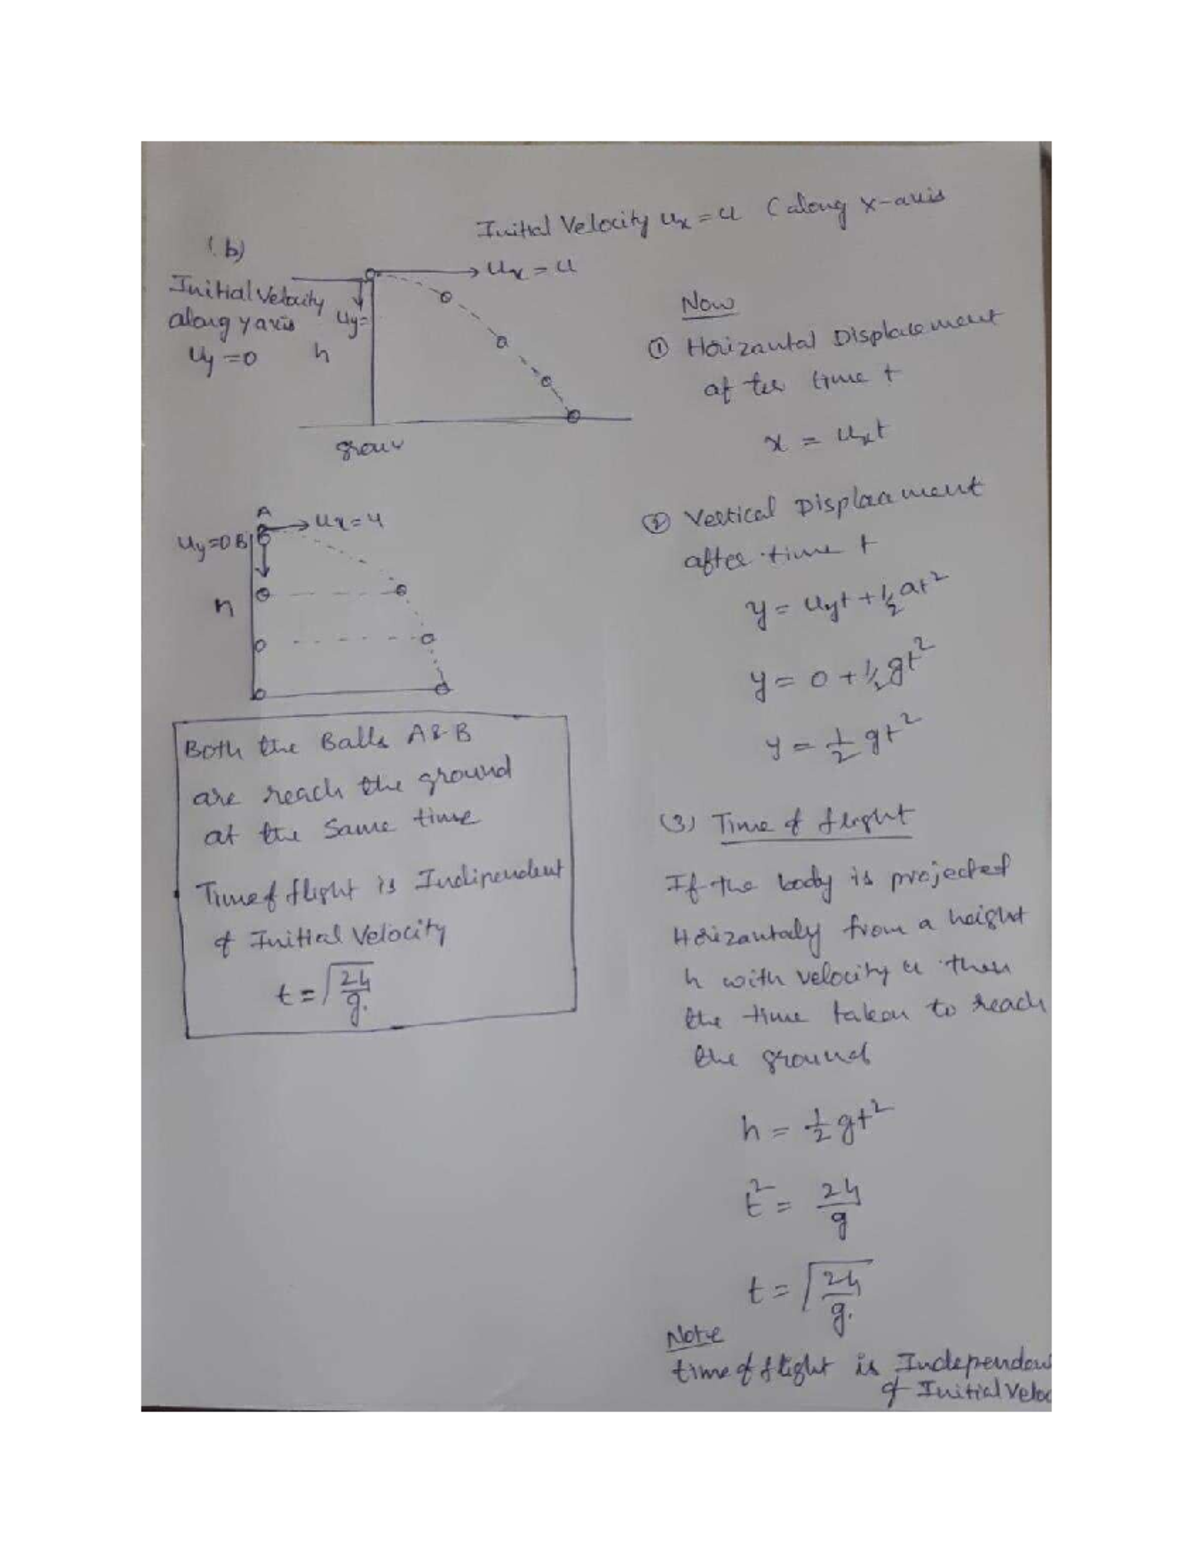 Initial Velocity ux = u (along x-axis
(b)
ux = u
Initial Velocity
along y axis
uy = 0
uy=
h
Now
① Horizantal Displacement
after time t
x = uxt
A
ux = u
uy=0 B
h
② Vertical Displacement
after time t
y = uyt + ½ at²
y = 0 + ½ gt²
y = ½ gt²
Both the Balls A & B
are reach the ground
at the Same time
Time of flight is Indipendent
of Initial Velocity
t = √(2h/g).
(3) Time of flight
If the body is projected
Horizantaly from a height
h with velocity u then
the time taken to reach
the ground
h = ½ gt²
t² = 2h/g
t = √(2h/g).
Note
time of flight is Independen
of Initial Veloc